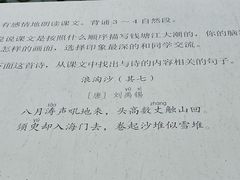 有感情地朗读课文。背诵3-4自然段。
说课文是按照什么顺序描写钱江大潮的，你的脑
怎样的画面，选择印象最深的和同学交流。
面这首诗，从课文中找出与诗的内容相关的句子。
浪淘沙（其七）
[唐] 刘禹锡
yǔ
xī
zhàng
八月涛声吼地来，头高数丈触山回。
xū
须臾却入海门去，卷起沙堆似雪堆。